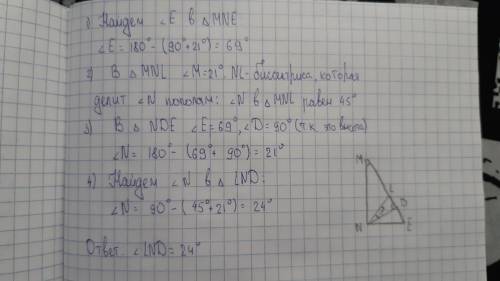 1) Найдем ∠E в △MNE
∠E = 180° - (90° + 21°) = 69°
2) В △MNL ∠M = 21°, NL - биссектриса, которая
делит ∠N пополам: ∠N в △MNL равен 45°
3) В △NDE ∠E = 69°, ∠D = 90° (т.к. это высота)
∠N = 180° - (69° + 90°) = 21°
4) Найдем ∠N в △LND:
∠N = 90° - (45° + 21°) = 24°
Ответ: ∠LND = 24°
M
L
D
?
N
E